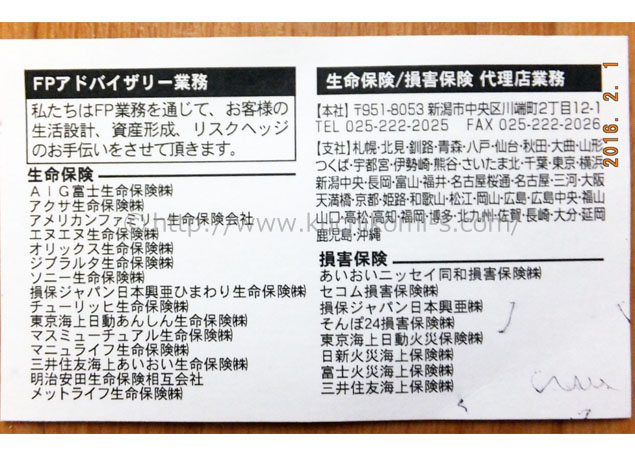 FPアドバイザリー業務
私たちはFP業務を通じて、お客様の
生活設計、資産形成、リスクヘッジ
のお手伝いをさせて頂きます。
生命保険
AIG富士生命保険㈱
アクサ生命保険㈱
アメリカンファミリー生命保険会社
エヌエヌ生命保険㈱
オリックス生命保険㈱
ジブラルタ生命保険㈱
ソニー生命保険㈱
損保ジャパン日本興亜ひまわり生命保険㈱
チューリッヒ生命保険㈱
東京海上日動あんしん生命保険㈱
マスミューチュアル生命保険㈱
マニュライフ生命保険㈱
三井住友海上あいおい生命保険㈱
明治安田生命保険相互会社
メットライフ生命保険㈱
生命保険/損害保険 代理店業務
【本社】〒951-8053 新潟市中央区川端町2丁目12-1
TEL 025-222-2025 FAX 025-222-2026
【支社】札幌・北見・釧路・青森・八戸・仙台・秋田・大曲・山形
つくば・宇都宮・伊勢崎・熊谷・さいたま北・千葉・東京・横浜
新潟中央・長岡・富山・福井・名古屋桜通・名古屋・三河・大阪
天満橋・京都・姫路・和歌山・松江・岡山・広島・広島中央・福山
山口・高松・高知・福岡・博多・北九州・佐賀・長崎・大分・延岡
鹿児島・沖縄
損害保険
あいおいニッセイ同和損害保険㈱
セコム損害保険㈱
損保ジャパン日本興亜㈱
そんぽ24損害保険㈱
東京海上日動火災保険㈱
日新火災海上保険㈱
富士火災海上保険㈱
三井住友海上保険㈱
2016. 2. 1